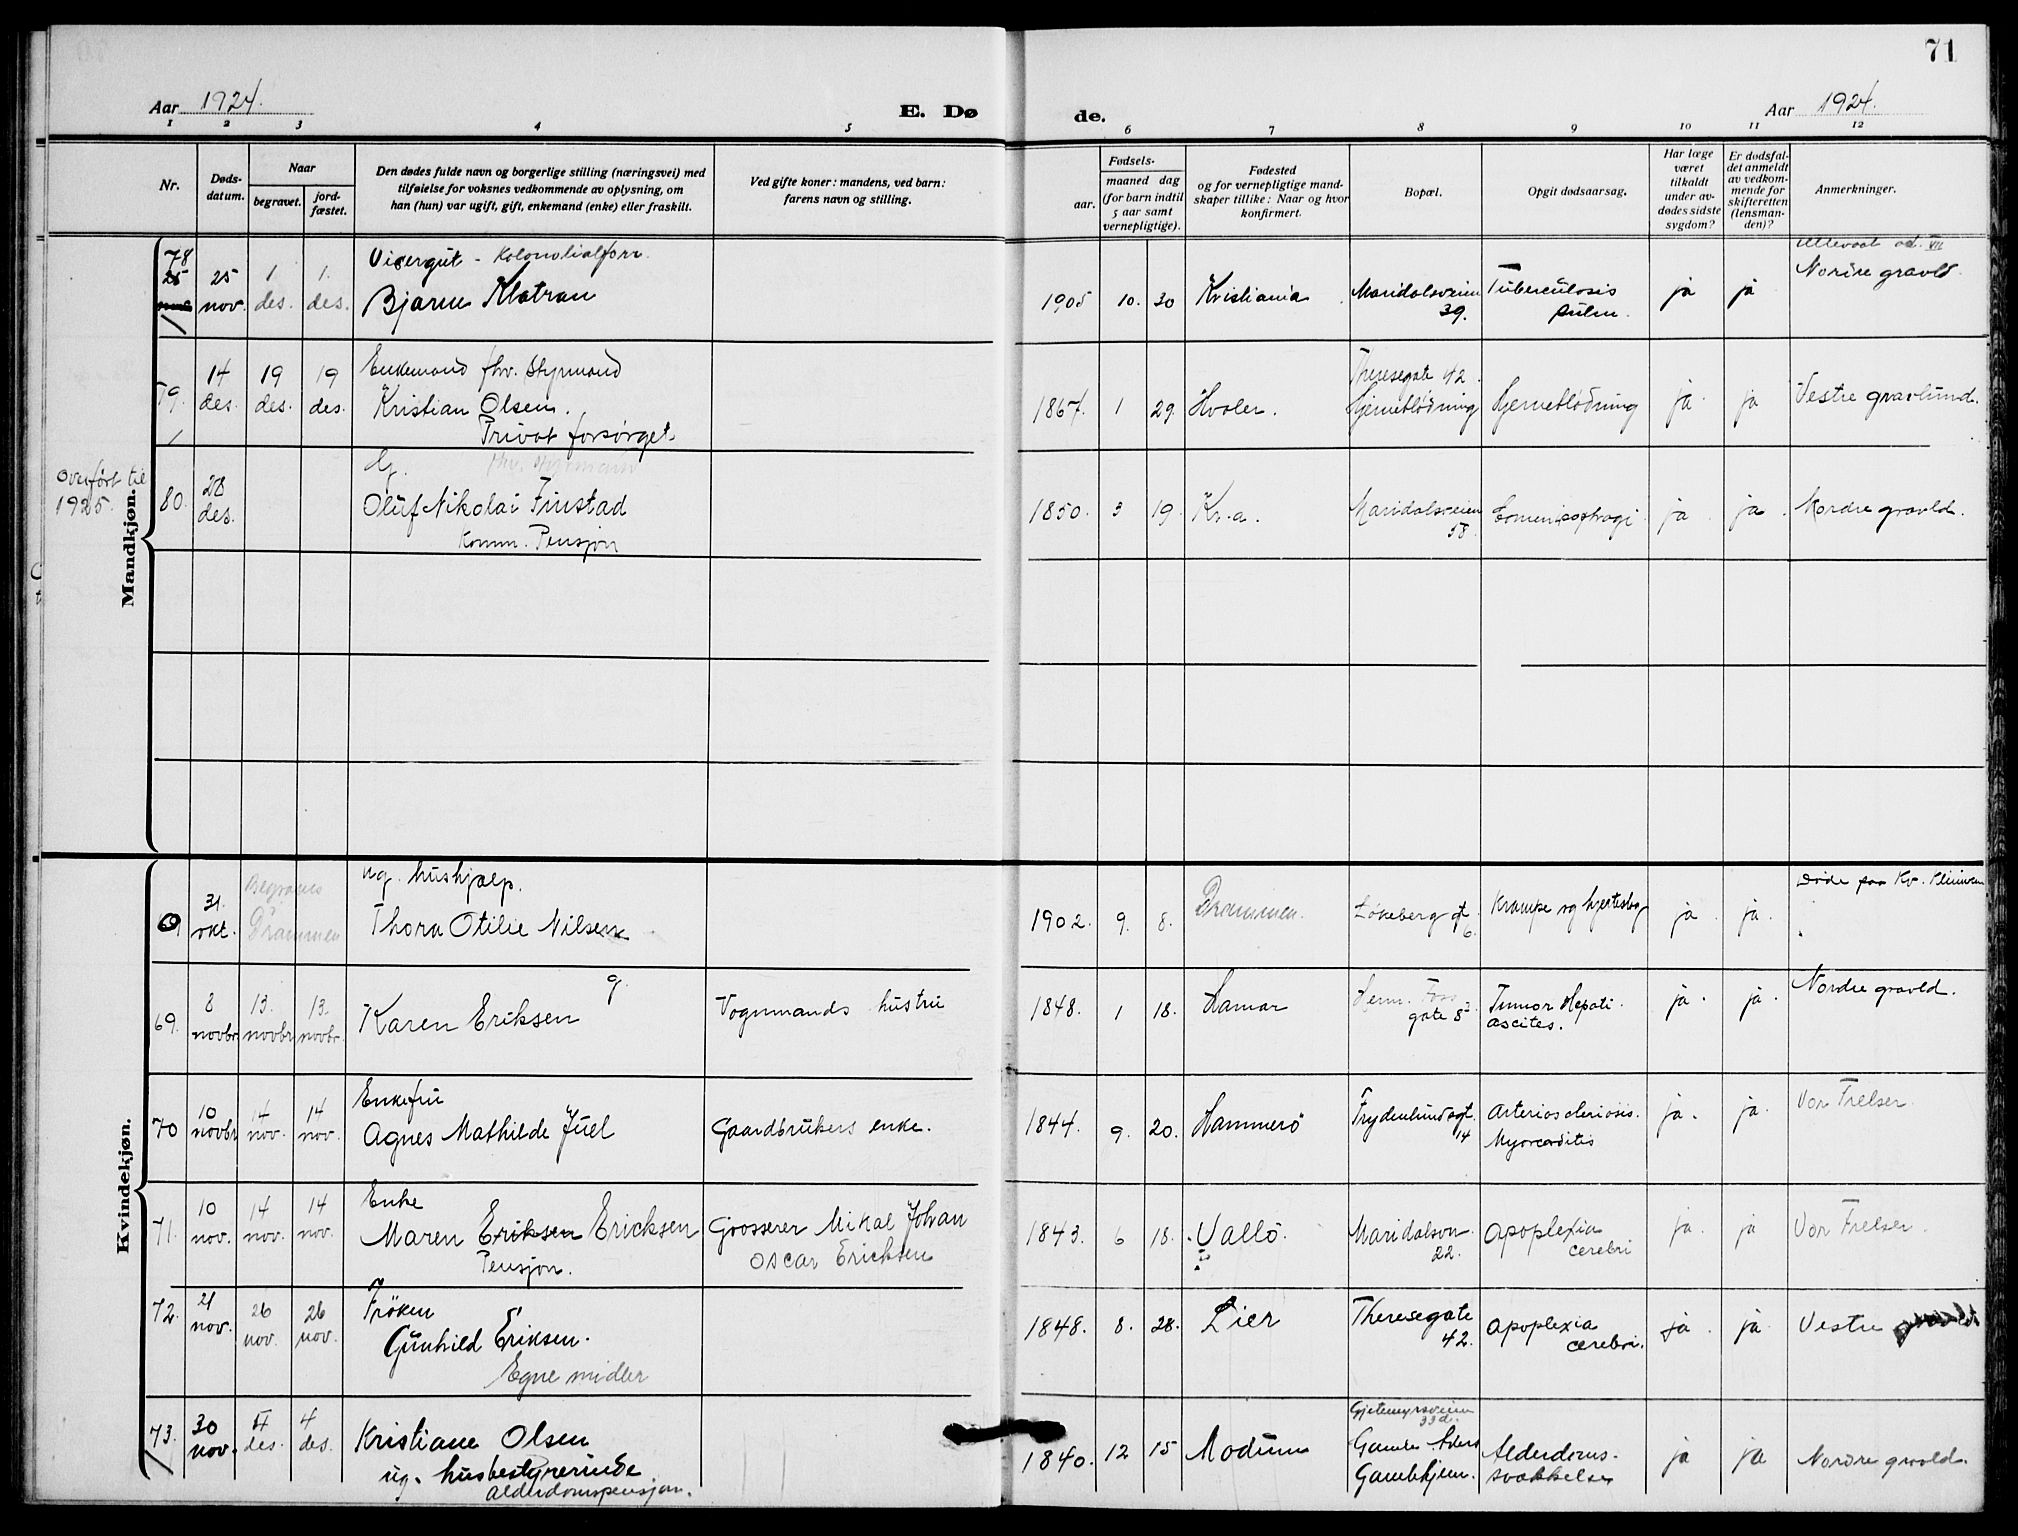 71
Aar 1924.
E. Dø
de.
Aar 1924.
1 2 3 4 5 6 7 8 9 10 11 12
Nr.
Døds-
datum.
Naar
begravet.
jord-
fæstet.
Den dødes fulde navn og borgerlige stilling (næringsvei) med
tilføielse for voksnes vedkommende av oplysning, om
han (hun) var ugift, gift, enkemand (enke) eller fraskilt.
Ved gifte koner: mandens, ved barn:
farens navn og stilling.
Fødsels-
aar.
maaned dag
(for barn indtil
5 aar samt
vernepligtige).
Fødested
og for vernepligtige mand-
skaper tillike: Naar og hvor
konfirmert.
Bopæl.
Opgit dødsaarsag.
Har læge
været
tilkaldt
under av-
dødes sidste
sygdom?
Er dødsfal-
det anmeldt
av vedkom-
mende for
skifteretten
(lensman-
den)?
Anmerkninger.
Mandkjøn.
78
25 nov.
1 des.
1. des.
Visergut - Kolonialforr.
Bjarne Klatran
1905 10. 30 Kristiania
Maridalsveien
39.
Tuberculosis
pulm.
ja ja
Ullevaal avd. VII
Nordre gravld.
79.
14 des.
19 des.
19 des.
Enkemand fhv. Styrmand
Kristian Olsen.
Privat forsørget
1867. 1 29. Hvaler.
Theresegate 42.
Hjerneblødning
Hjerneblødning
ja ja
Vestre gravlund.
Overført til
1925.
80.
28 des.
G. fhv. Styrmand
Oluf Nikolai Finstad
Komm. Pensjon
1850. 3 19. Kr.a.
Maridalsveien
58.
ja ja.
Nordre gravld.
Kvindekjøn.
69
31. okt.
Begraves
Drammen
ug. hushjælp.
Thora Otilie Nilsen
1902. 9. 8. Drammen.
Løkeberg gt
6.
Krampe og hjerteslag
ja. ja.
Døde paa Kv. Klinikken
69.
8 novbr.
13. novbr.
13. novbr.
g.
Karen Eriksen
Vognmands hustru
1848. 1 18. Hamar
Herm. Foss
gate 8
Tumor Hepati
ascites.
ja. ja.
Nordre gravld.
70
10 novbr.
14 nov.
14 nov.
Enkefru
Agnes Mathilde Juel
Gaardbrukers enke.
1844. 9. 20. Hammerö
Frydenlundsgt.
14
Arteriosclerosis.
Myocarditis
ja. ja.
Vor Frelser.
71.
10 nov.
14 nov.
14 nov.
Enke
Maren Eriksen Ericksen
Pensjon.
Grosserer Mikal Johan
Oscar Ericksen
1843. 6 18. Vallö.
Maridalsvn.
22.
Apoplexia
cerebri
ja. ja
Vor Frelser.
72.
21 nov.
26 nov.
26 nov.
Frøken
Gunhild Eriksen.
Egne midler
1848. 8. 28. Lier
Theresegate
42.
Apoplexia
cerebri.
ja. ja.
Vestre
73.
30 nov.
4 des.
4 des.
Kristiane Olsen
ug. husbestyrerinde
Alderdomspensjon.
1840. 12 15 Modum
Gjetemyrsveien
33d.
Gamle Aders
Gamlehjem.
Alderdoms-
svakkelse
ja ja
Nordre gravld.